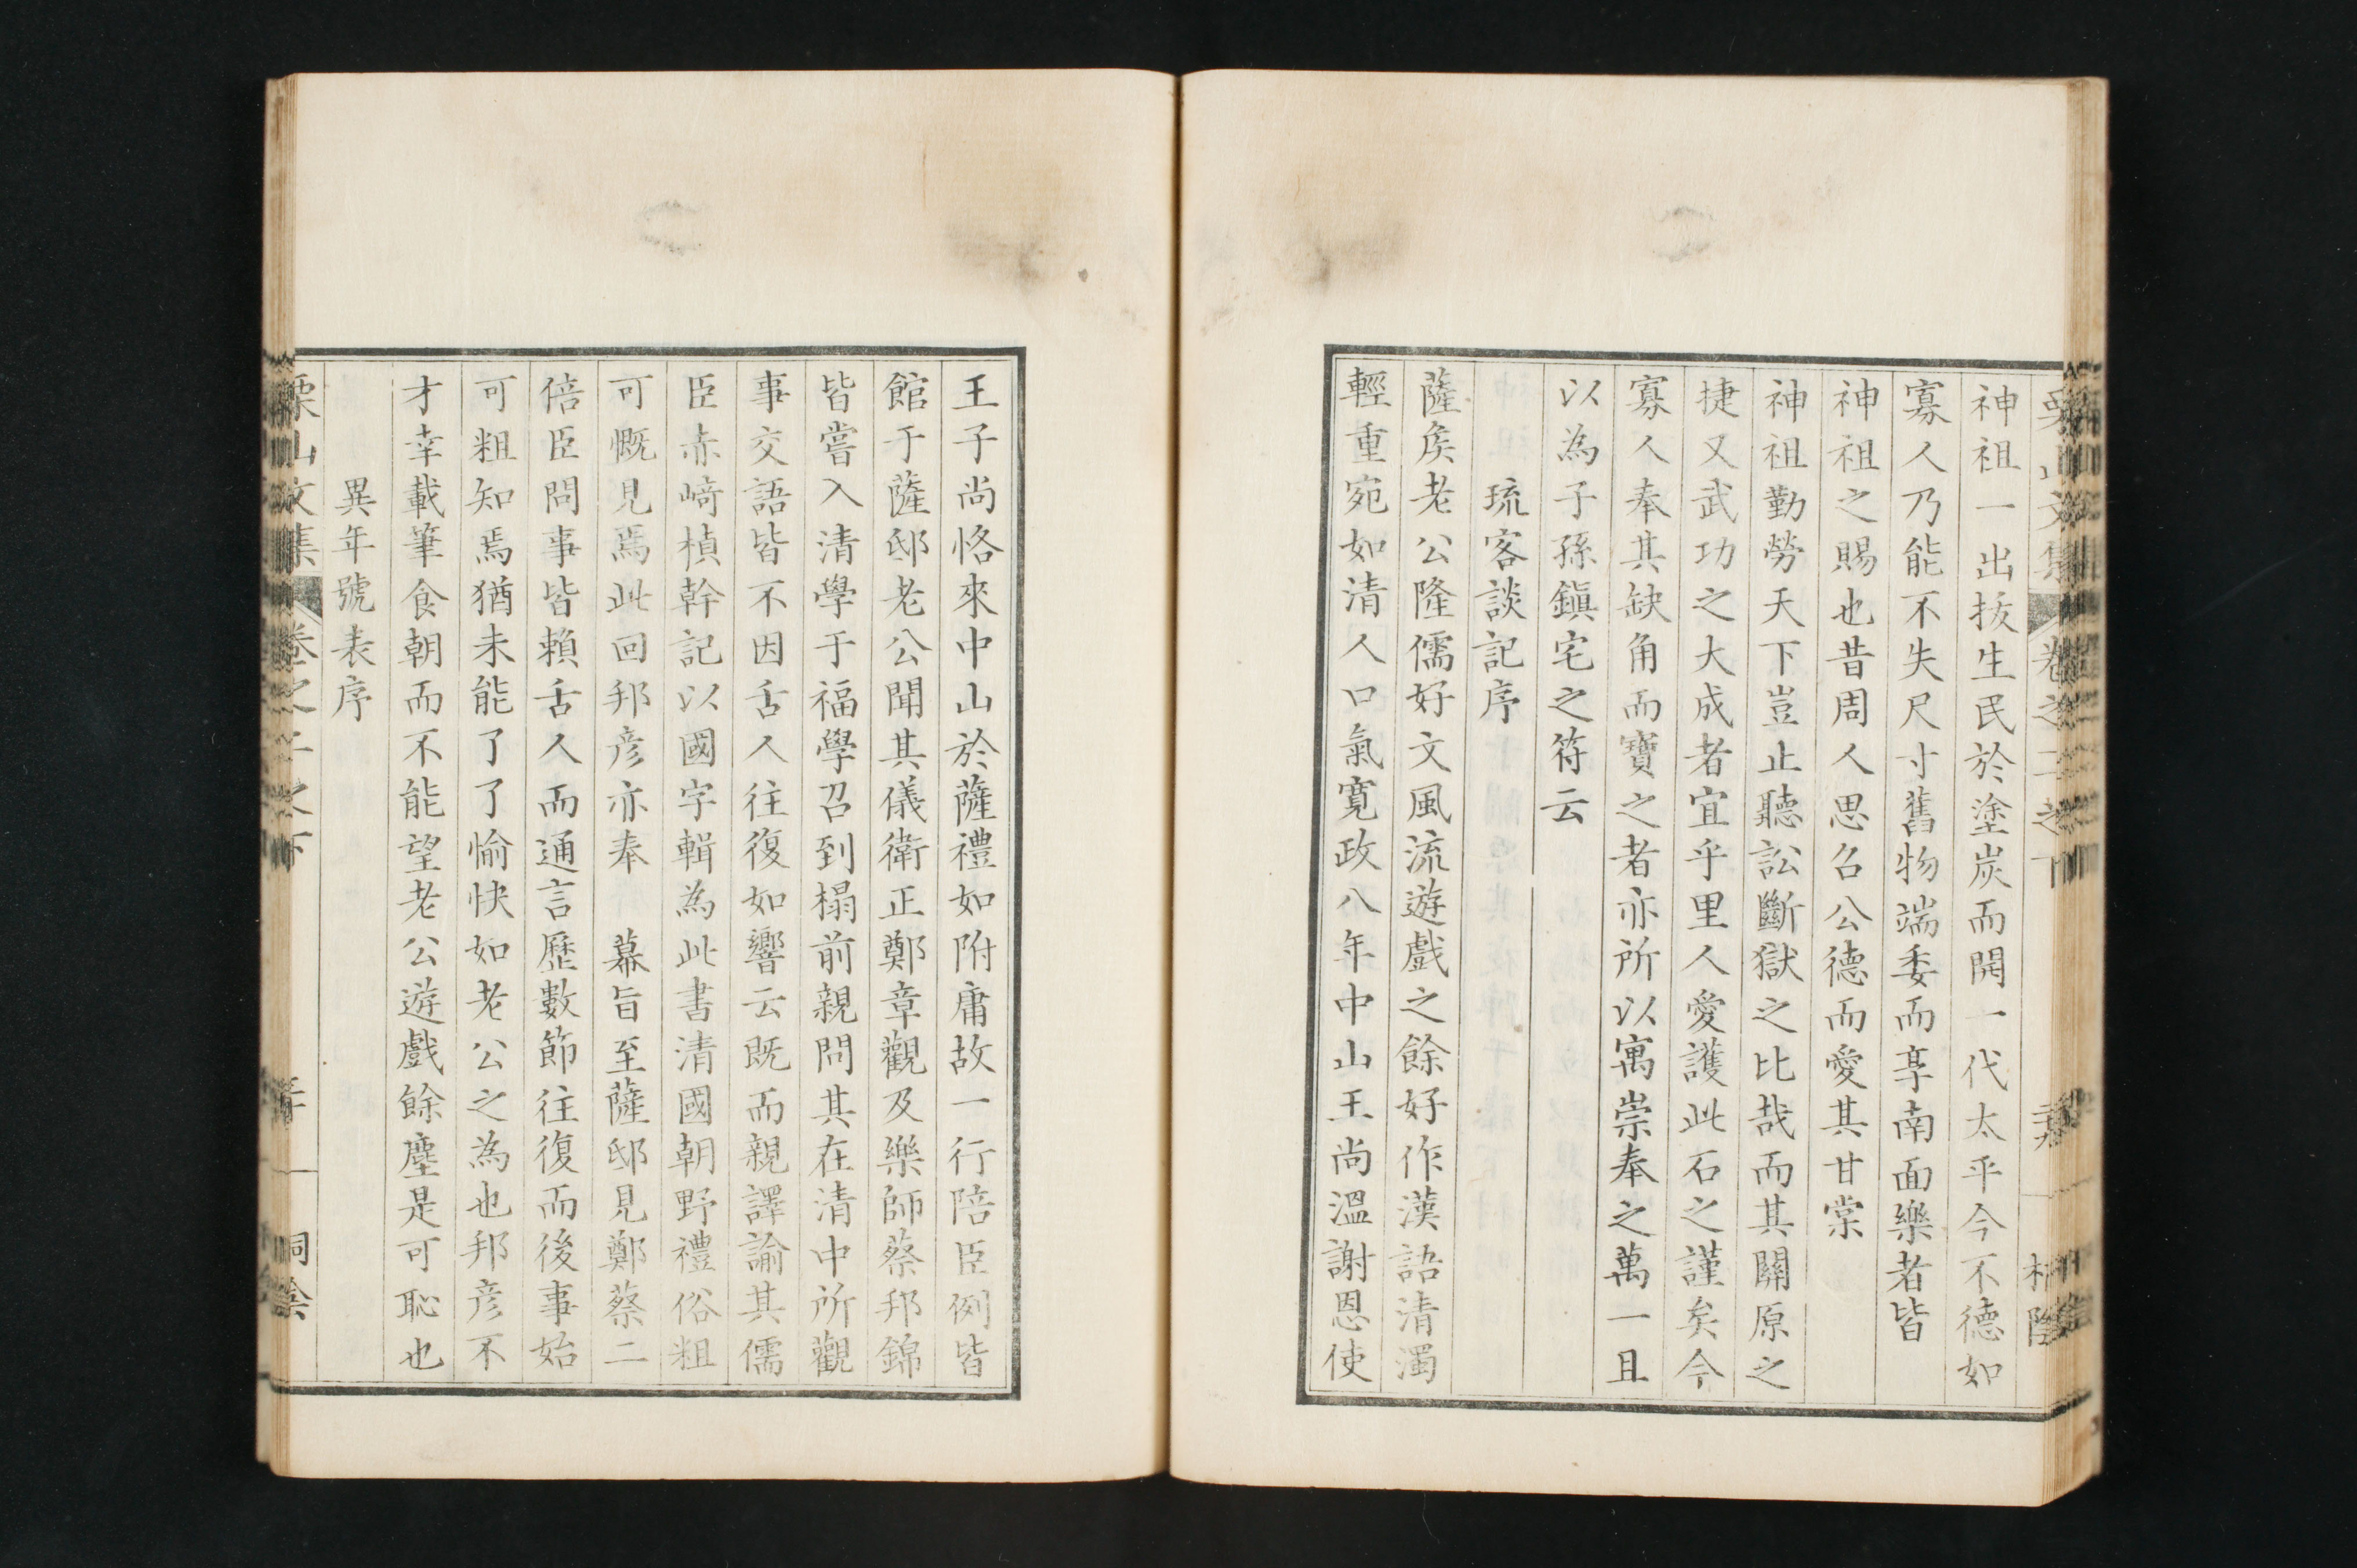 神祖一出拔生民於塗炭而開一代太平今不德如
寡人乃能不失尺寸舊物端委而享南面樂者皆
神祖之賜也昔周人思召公德而愛其甘棠
神祖勤勞天下豈止聽訟斷獄之比哉而其關原之
捷又武功之大成者宜乎里人愛護此石之謹矣今
寡人奉其缺角而寶之者亦所以寓崇奉之萬一且
以為子孫鎭宅之符云
琉客談記序
薩矦老公隆儒好文風流遊戲之餘好作漢語清濁
輕重宛如清人口氣寛政八年中山王尚溫謝恩使
王子尚恪來中山於薩禮如附庸故一行陪臣例皆
館于薩邸老公聞其儀衛正鄭章觀及樂師蔡邦錦
皆嘗入清學于福學召到榻前親問其在清中所觀
事交語皆不因舌人往復如響云既而親譯諭其儒
臣赤﨑楨幹記以國字輯為此書清國朝野禮俗粗
可慨見焉此回邦彦亦奉　幕旨至薩邸見鄭蔡二
倍臣問事皆賴舌人而通言歷數節往復而後事始
可粗知焉猶未能了了愉快如老公之為也邦彦不
才幸載筆食朝而不能望老公遊戲餘塵是可恥也
異年號表序
栗山文集　卷之二之下